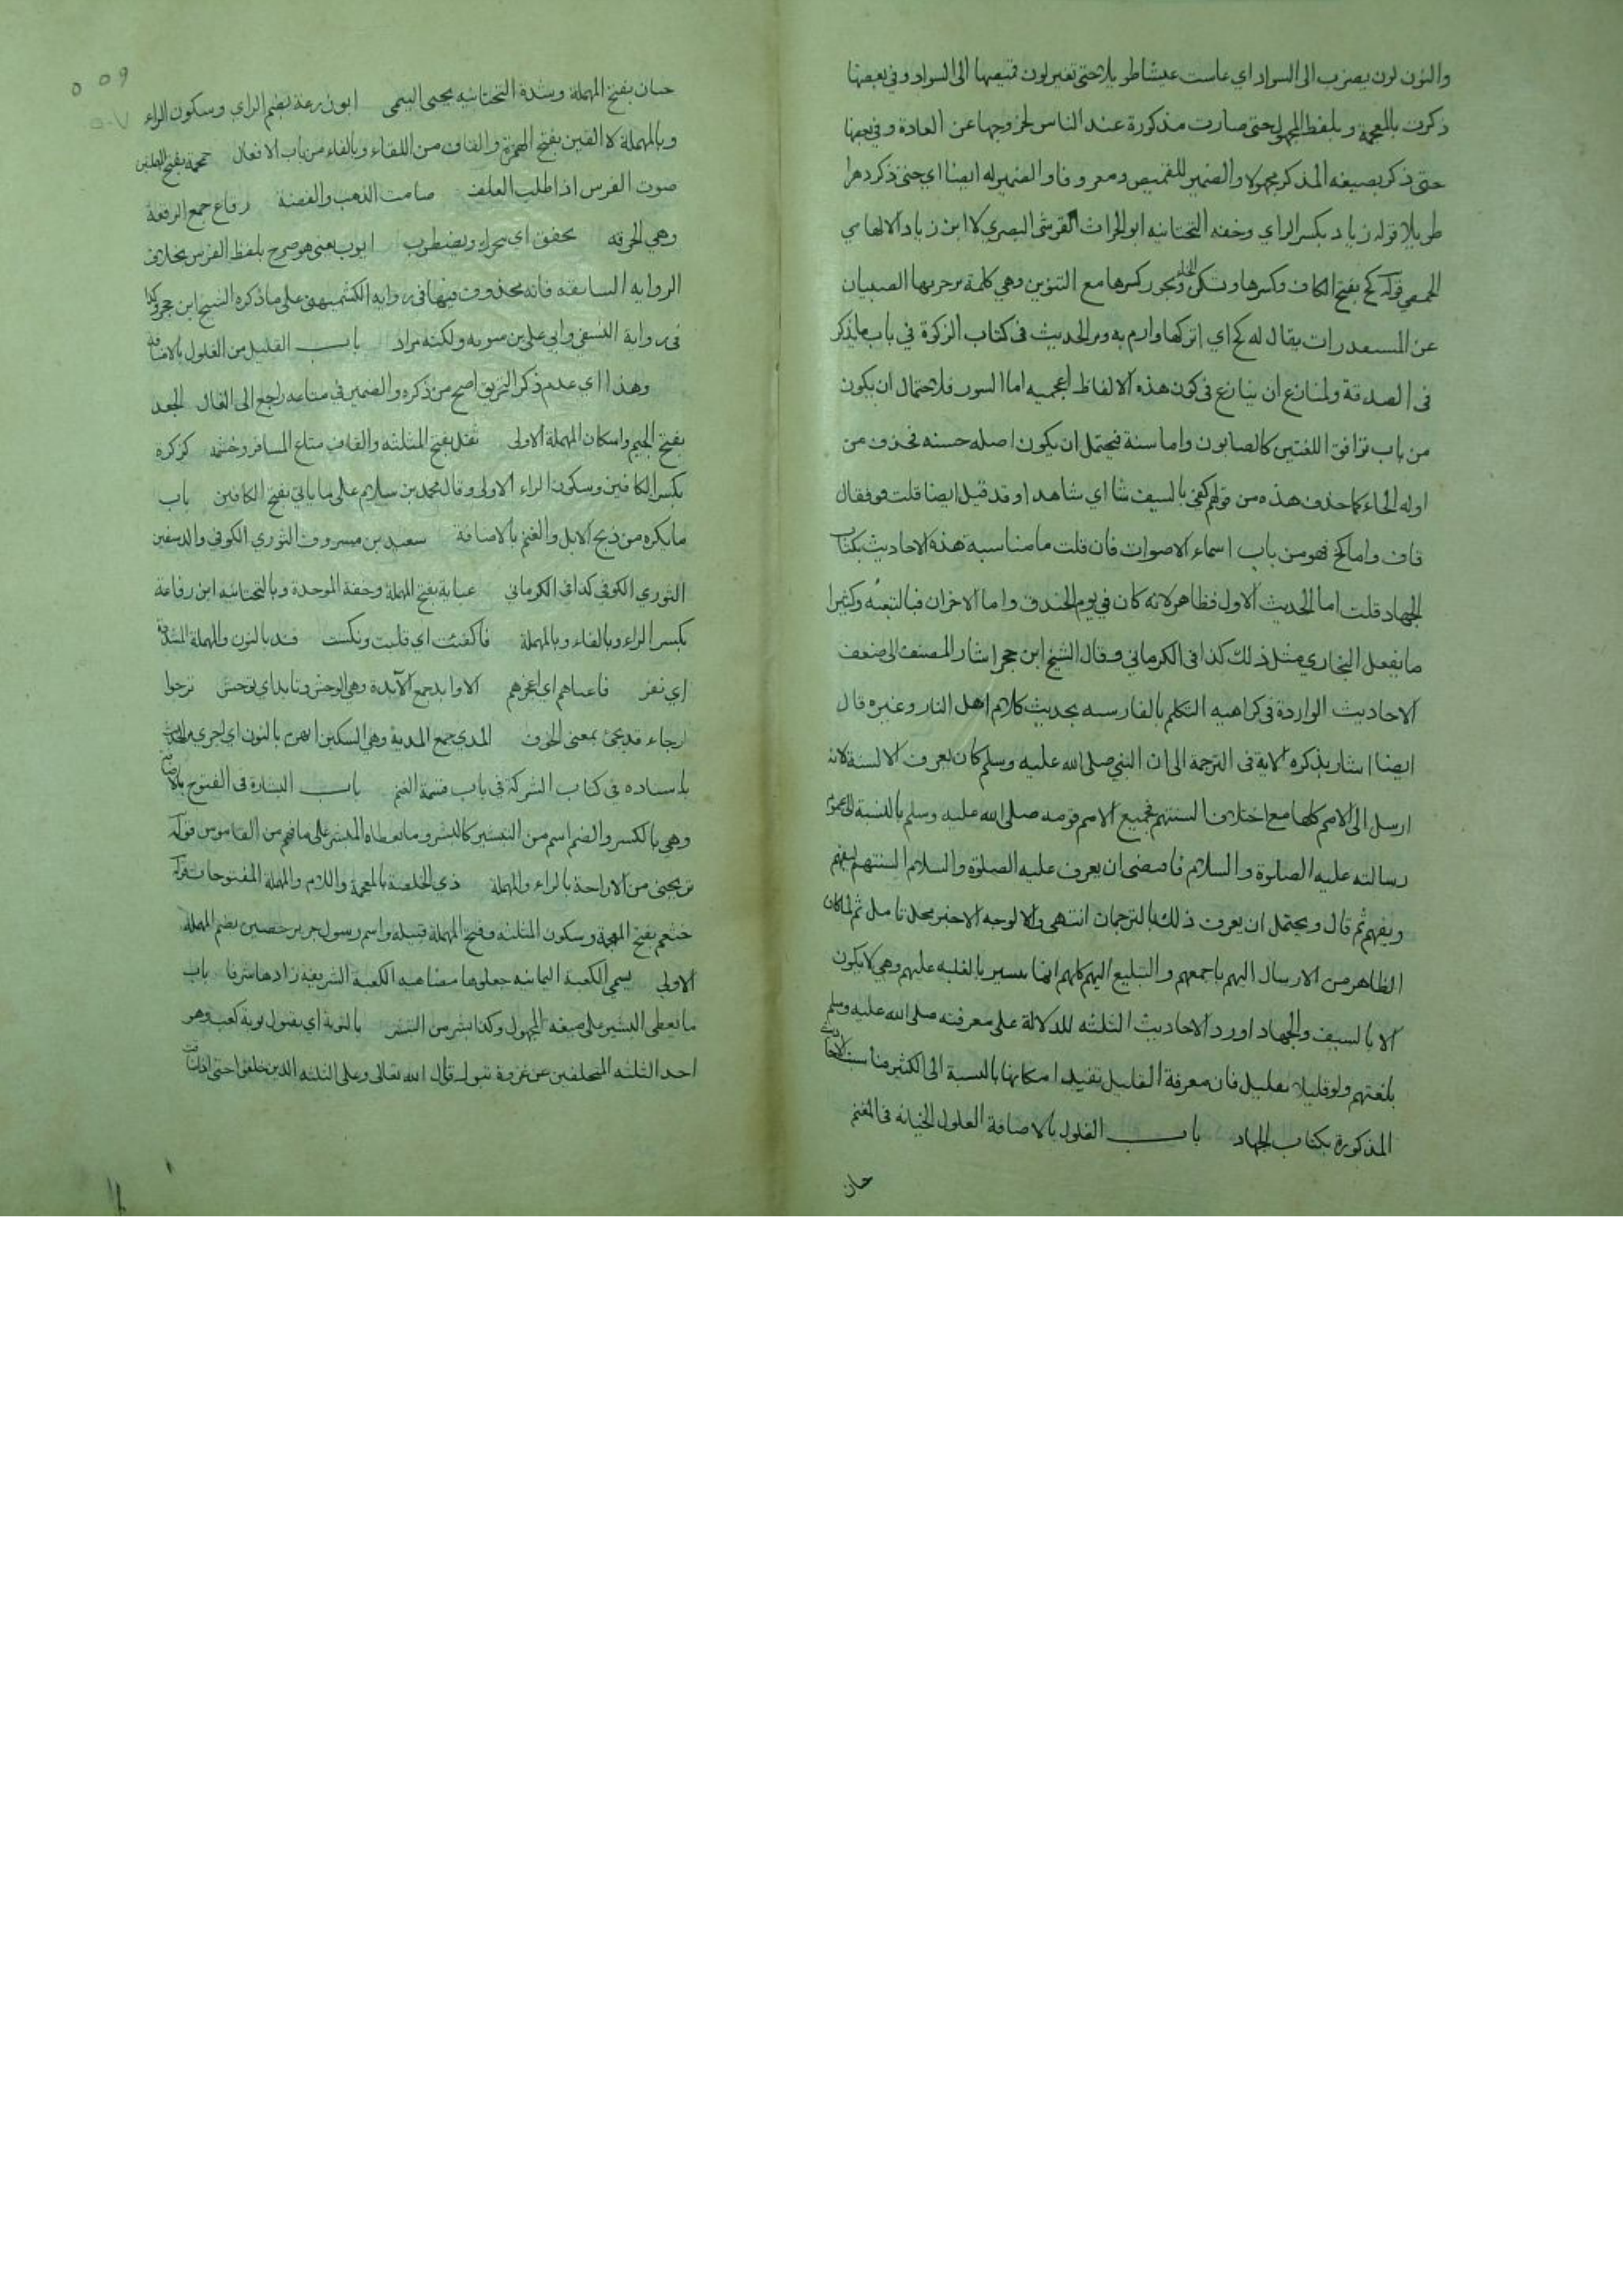 والنون لون يضرب الى السواد اي عاشت عيشا طويلا حتى تغير لون قميصها الى السواد وفي بعضها
ذكرت بالمعجمة وبلفظ المجهول حتى صارت مذكورة عند الناس لخروجها عن العادة وفي بعضها
حتى ذكر بصيغة المذكر مجهولا والضمير للقميص ومعروفا والضمير له ايضا اي حتى ذكر دهرا
طويلا قوله زياد بكسر الزاي وخفة التحتانيه ابو الحراث القرشي البصري لا ابن زياد الالهاني
الحمصي قوله كخ بفتح الكاف وكسرها وسكون الخاء ويجوز كسرها مع التنوين وهي كلمة يزجر بها الصبيان
عن المستقذرات يقال له كخ اي اتركها وارم به ومر الحديث في كتاب الزكوة في باب ما يذكر
في الصدقة ولمنازع ان ينازع في كون هذه الالفاظ اعجميه اما السور فلاحتمال ان يكون
من باب توافق اللغتين كالصابون واما سنة فيحتمل ان يكون اصله حسنه فحذف من
اوله الحاء كما حذف هذه من قولهم كفى بالسيف شا اي شاهدا وقد قيل ايضا قلت قف فقال
قاف واما كخ فهو من باب اسماء الاصوات فان قلت ما مناسبة هذه الاحاديث بكتاب
الجهاد قلت اما الحديث الاول فظاهر لانه كان في يوم الخندق واما الاخران فبالتبعية وكثيرا
ما يفعل البخاري مثل ذلك كذا في الكرماني وقال الشيخ ابن حجر اشار المصنف الى ضعف
الاحاديث الواردة في كراهيه التكلم بالفارسيه بحديث كلام اهل النار وغيره قال
ايضا اشار بذكره الاية في الترجمة الى ان النبي صلى الله عليه وسلم كان يعرف الالسنة لانه
ارسل الى الامم كلها مع اختلاف السنتهم فجميع الامم قومه صلى الله عليه وسلم بالنسبة الى عموم
رسالته عليه الصلوة والسلام فاقتضى ان يعرف عليه الصلوة والسلام السنتهم ليفهم
ويفهم ثم قال ويحتمل ان يعرف ذلك بالترجمان انتهى والا لوجه الاخير محل تامل ثم لما كان
الظاهر من الارسال اليهم باجمعهم والتبليغ اليهم كلهم انما يتيسر بالغلبه عليهم وهي لا يكون
الا بالسيف والجهاد اورد الاحاديث الثلثه للدلالة على معرفته صلى الله عليه وسلم
بلغتهم ولو قليلا بقليل فان معرفة القليل تفيد امكانها بالنسبة الى الكثير فناسبت الاحاديث
المذكورة بكتاب الجهاد باب الغلول بالاضافة الغلول الخيانه في المغنم
حيان
حيان بفتح المهملة وشدة التحتانيه يحيى التيمي ابو زرعة بضم الزاي وسكون الراء
وبالمهملة لا الفين بفتح الهمزة والقاف من اللقاء وبالفاء من باب الافعال حمحمة بفتح المهملتين
صوت الفرس اذا طلب العلف صامت الذهب والفضة رقاع جمع الرقعة
وهي الخرقه تخفق اي يتحرك ويضطرب ايوب يعني هو صرح بلفظ الفرس بخلاف
الروايه السابقه فانه محذوف فيها في روايه الكشميهني على ما ذكره الشيخ ابن حجر وكذا
في رواية النسفي وابي علي بن سبويه ولكنه مراد باب القليل من الغلول بالاضافة
وهذا اي عدم ذكر التحريق اصح من ذكره والضمير في متاعه راجع الى الغال الجعد
بفتح الجيم واسكان المهملة الاولى ثقل بفتح المثلثه والقاف متاع المسافر وحشمه كركرة
بكسر الكافين وسكون الراء الاولى وقال محمد بن سلام على ما ياتي بفتح الكافين باب
ما يكره من ذبح الابل والغنم بالاضافة سعيد بن مسروق الثوري الكوفي والد سفين
الثوري الكوفي كذا في الكرماني عباية بفتح المهملة وخفة الموحدة وبالتحتانية ابن رفاعة
بكسر الراء وبالفاء وبالمهملة فاكفئت اي قلبت ونكست فند بالنون والمهملة المشددة
اي نفر فاعياهم اي اعجزهم الاوابد جمع الآبدة وهي الوحش وتابد اي توحش نرجوا
الرجاء قد يجئ بمعنى الخوف المدى جمع المدية وهي السكين انهر بالنون اي اجرى مر الحديث
باسناده في كتاب الشركة في باب قسمة الغنم باب البشارة في الفتوح بالاضافة
وهي بالكسر والضم اسم من التبشير كالبشر وما يعطاه المبشر على ما فهم من القاموس قوله
تريحني من الاراحة بالراء والمهملة ذي الخلصة بالمعجمة واللام والمهملة المفتوحات قوله
خثعم بفتح المعجمة وسكون المثلثه وفتح المهملة قبيلة واسم رسول جرير حصين بضم المهملة
الاولى يسمى الكعبة اليمانيه جعلوها مضاهية الكعبة الشريفة زادها شرفا باب
ما يعطى البشير على صيغة المجهول وكذا بشر من التبشير بالتوبة اي بقبول توبة كعب وهو
احد الثلثه المتخلفين عن غزوة تبوك قال الله تعالى وعلى الثلثه الذين خلفوا حتى اذا ضاقت